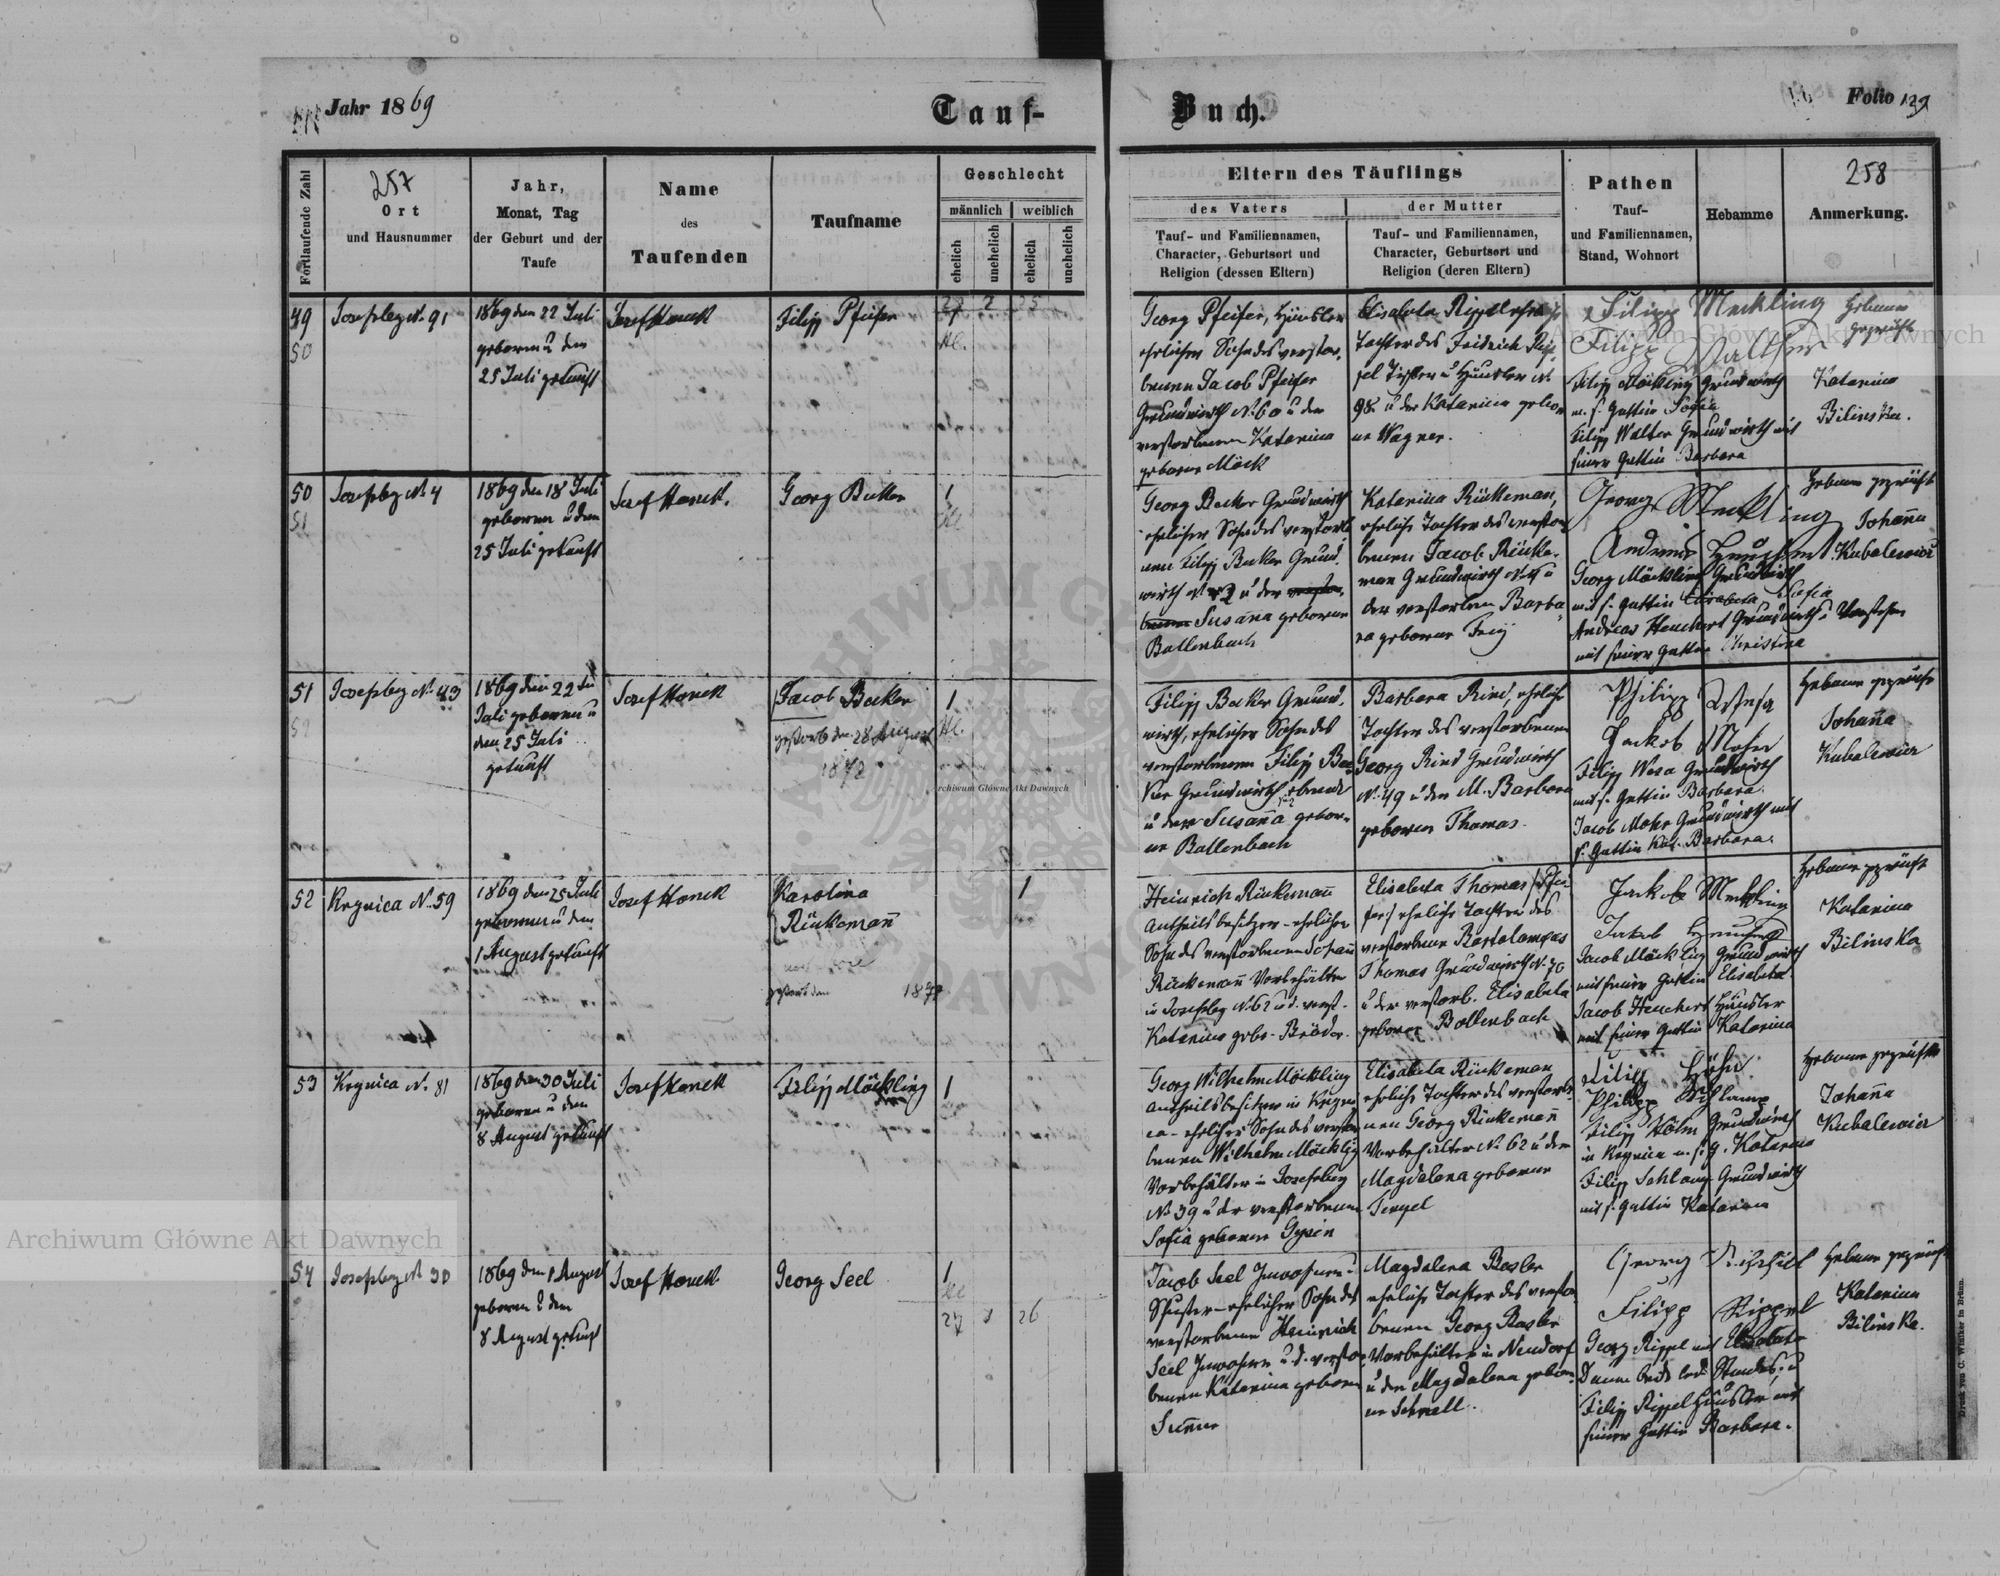 Jahr 1869
Tauf-
Buch.
Folio 129
Fortlaufende Zahl
257
Ort
und Hausnummer
Jahr,
Monat, Tag
der Geburt und der
Taufe
Name
des
Taufenden
Taufname
Geschlecht
männlich
weiblich
ehelich
unehelich
ehelich
unehelich
Eltern des Täuflings
des Vaters
Tauf- und Familiennamen,
Character, Geburtsort und
Religion (dessen Eltern)
der Mutter
Tauf- und Familiennamen,
Character, Geburtsort und
Religion (deren Eltern)
Pathen
Tauf-
und Familiennamen,
Stand, Wohnort
Hebamme
258
Anmerkung.
49
50
Josefsbg N. 91
1869 den 22 Juli
geboren u den
25 Juli getauft
Josef Hanek
Filipp Pfeifer
1
Georg Pfeifer, Häusler
ehelicher Sohn des verstor-
benen Jacob Pfeifer
Grundwirth N. 60 u der
verstorbenen Katarina
geborne Möck
Elisabeta Rippel eheliche
Tochter des Fridrich Rip-
pel Tischler u Häusler N.
98 u der Katarina gebor-
ne Wagner.
Filipp Meckling
Filipp Walther
Filipp Möckling Grundwirth
m. s. Gattin Sofia
Filipp Walter Grundwirth mit
seiner Gattin Barbara
Hebame
geprüft
Katarina
Bilinska.
50
51
Josefsbg N. 4
1869 den 18 Juli
geboren u den
25 Juli getauft
Josef Hanek.
Georg Becker
1
Georg Becker Grundwirth
ehelicher Sohn des verstorbe-
nen Filipp Becker Grund-
wirth N. 2 u der verstor-
benen Susana geborene
Ballenbach
Katarina Rückeman,
eheliche Tochter des verstor-
benen Jacob Rücke-
man Grundwirth N. u
der verstorben Barba-
ra geborne Frey
Georg Meckling
Andreas Heuchert
Georg Möckling Grundwirth
mit s. Gattin Elisabeta Sofia
Andreas Heuchert Grundwirth u Vorsteher
mit seiner Gattin Christina
Hebame geprüft
Johana
Kubalewicz
51
52
Josefsbg N. 43
1869 den 22 
Juli geboren u
den 25 Juli
getauft
Josef Hanek
Jacob Becker
gestorb den 28 August
1872
1
Filipp Becker Grund-
wirth, ehelicher Sohn des
verstorbenen Filipp Bec-
ker Grundwirth
u der Susana gebor-
ne Ballenbach
Barbara Rind, eheliche
Tochter des verstorbenen
Georg Rind Grundwirth
N. 49 u der M. Barbara
geborne Thomas.
Philipp
Jackob Moher
Filipp Wesa Grundwirth
mit s. Gattin Barbara.
Jacob Mohr Grundwirth mit
s. Gattin Kat. Barbara.
Hebame geprüft
Johana
Kubalewicz
52
Krynica N. 59
1869 den 25 Juli
geboren u den
1 August getauft
Josef Hanek
Karolina
Rückemann
gestorb den 187
1
Heinrich Rückeman
Antheilsbesitzer ehelicher
Sohn des verstorbenen Johann
Rückeman Vorbehälter
in Josefsbg N. 62 u d. verst.
Katarina gebo. Bröder.
Elisabeta Thomas
eheliche Tochter des
verstorbene Bartolomeus
Thomas Grundwirth N. 70
u der verstorb. Elisabeta
geborne Bollenbach
Jackob Meckling
Jakob Heuchert
Jacob Möckling Grundwirth
mit seiner Gattin Elisabeta
Jacob Heuchert Häusler
mit seiner Gattin Katarina
Hebame geprüft
Katarina
Bilinska
53
Krynica N. 81
1869 den 30 Juli
geboren u den
8 August getauft
Josef Hanek
Filipp Möckling
1
Georg Wilhelm Möckling
Antheilsbesitzer in Kryni-
ca - ehelicher Sohn des verstor-
benen Wilhelm Möcklig
Vorbehälter in Josefsbeg
N. 39 u der verstorbenen
Sofia geborne Gysin
Elisabeta Rückeman
eheliche Tochter des verstorbe-
nen Georg Rückeman
Vorbehälter N. 62 u der
Magdalena geborene
Tengel
Filipp Höhn
Philipp Schlamp
Filipp Höhn Grundwirth
in Krynica m. s. g. Katarina
Filipp Schlamp Grundwirth
mit s. Gattin Katarina
Hebame geprüft
Johana
Kubalewicz
54
Josefsbeg N 30
1869 den 1 August
geboren u den
8 August getauft
Josef Hanek
Georg Seel
1
27 2 26
Jacob Seel Inwohner u
Schuster - ehelicher Sohn des
verstorbenen Heinrich
Seel Inwohner u. d. verstor-
benen Katarina geborne
Magdalena Basler
eheliche Tochter des verstor-
benen Georg Basler
Vorbehälter in Neudorf
u der Magdalena gebor-
ne Schnell.
Georg
Filipp Rippel
Georg Rippel mit Elisabeta
Damm beide led. Standes, u
Filipp Rippel Häusler mit
seiner Gattin Barbara.
Hebame geprüft
Katarina
Bilinska.
Druck von C. Winiker in Brünn.
Archiwum Główne Akt Dawnych
Archiwum Główne Akt Dawnych
Archiwum Główne Akt Dawnych